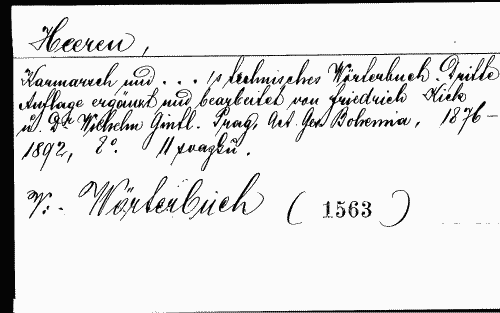 Heeren,
Karmarsch und . . . 's technisches Wörterbuch. Dritte
Auflage ergänzt und bearbeitet von Friedrich Kick
u. Dr Wilhelm Gintl. Prag, Act. Ges. Bohemia, 1876-
1892, 8º. 11 svazků.
V:- Wörterbuch (1563)